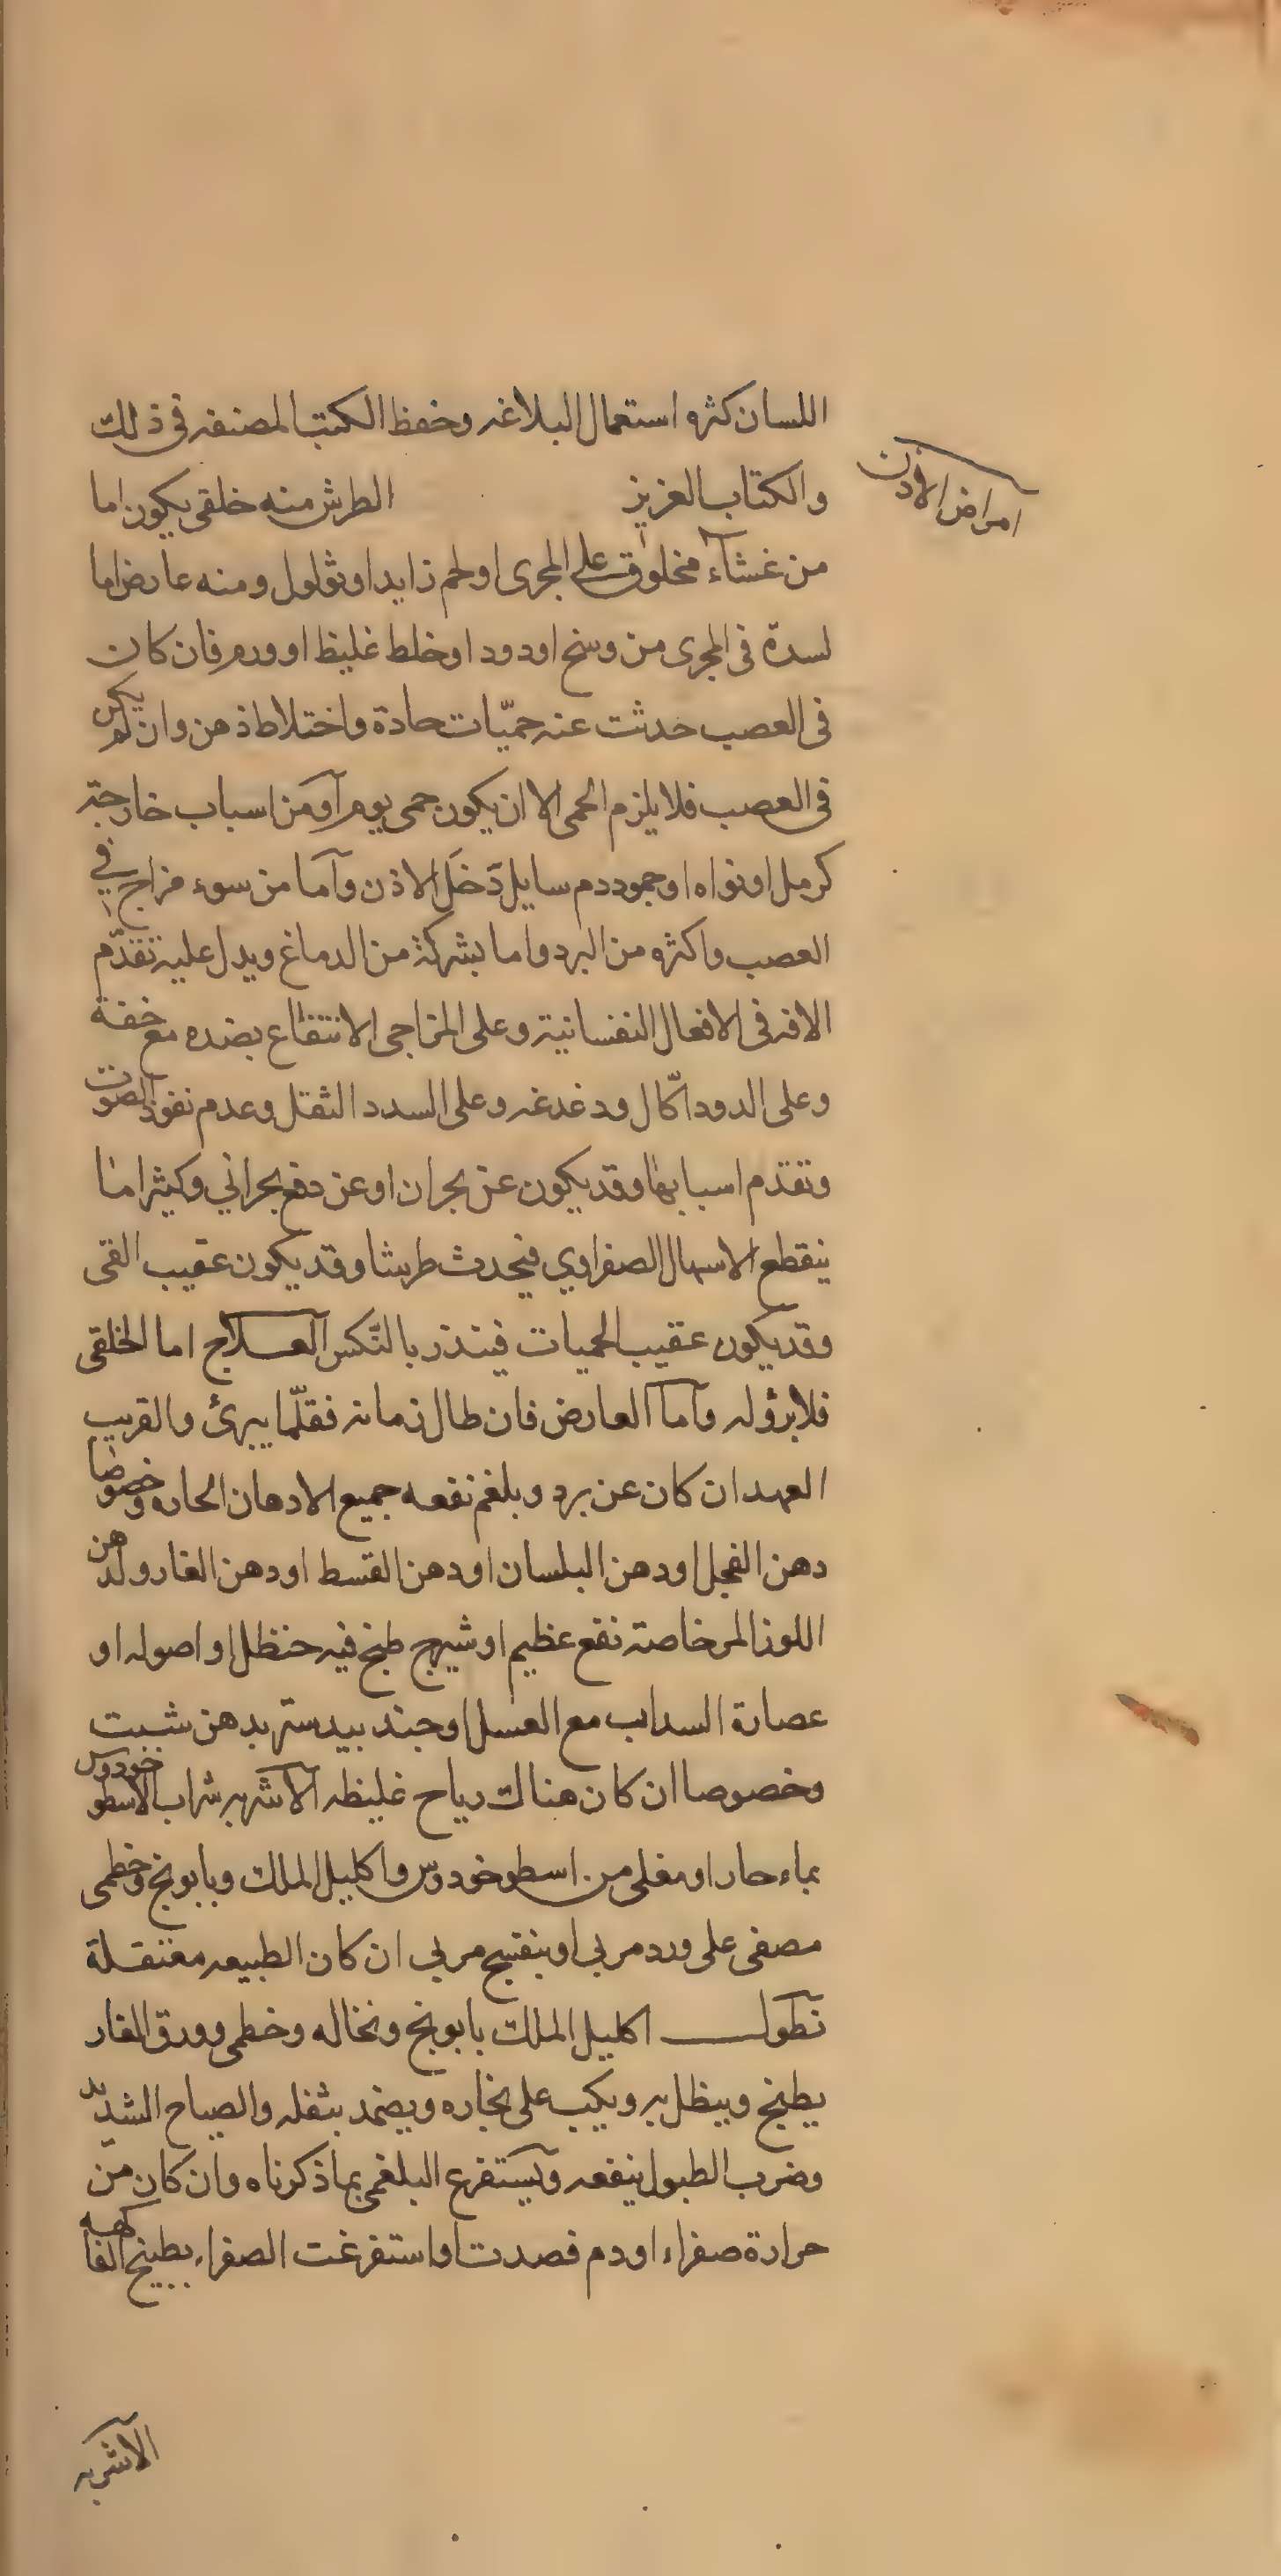 اللسان كثره استعمال البلاغه وحفظ الكتب المصنفه فى ذلك
امراض الاذن
والكتاب العزيز الطرش منه خلقى يكون اما
من غشآء مخلوق على المجرى او لحم زايد او ثؤلول ومنه عارض اما
لسدة فى المجرى من وسخ او دود او خلط غليظ او ورم فان كان
فى العصب حدثت عنه حميّات حادة واختلاط ذهن وان لم يكن
فى العصب فلا يلزم الحمى الا ان يكون حمى يوم آو من اسباب خارجية
كرمل او نواه او جمود دم سايل دَخَل الاذن وآما من سوء مزاج في
العصب واكثره من البرد واما بشركة من الدماغ ويدل عليه تقدّم
الافه فى الافعال النفسانية وعلى المزاجى الانتفاع بضده مع خفة
وعلى الدود اكّال ودغدغه وعلى السدد الثقل وعدم نفوذ الصوت
وتقدم اسبابها وقد يكون عن بحران او عن دفع بحراني وكثيرا ما
ينقطع الاسهال الصفراوي فيحدث طرشا وقد يكون عقيب القى
وقد يكون عقيب الحميات فينذر بالنّكس العلاج اما الخلقى
فلا برؤ له وآما العارض فان طال زمانه فقلّما يبرئ والقريب
العهد ان كان عن برد وبلغم نفعه جميع الادهان الحاره وخصوصا
دهن الفجل او دهن البلسان او دهن القسط او دهن الغار ولدهن
اللوز المر خاصة نفع عظيم او شيرج طبخ فيه حنظل او اصوله او
عصارة السداب مع العسل او جند بيدستر بدهن شبت
وخصوصا ان كان هناك رياح غليظه الآشربه شراب الاسطوخودوس
بماء حار او مغلى من اسطوخودوس واكليل الملك وبابونج وخطمى
مصفى على ورد مربى او بنفسج مربى ان كان الطبيعه معتقلة
نطول اكليل الملك بابونج ونخاله وخطمى وورق الغار
يطبخ وينطل به ويكب على بخاره ويضمد بثفله والصياح الشديد
وضرب الطبول ينفعه ويستفرع البلغمى بما ذكرناه وان كان من
حرارة صفراء او دم فصدت او استفرغت الصفراء بطبيخ الفاكهه
الآشربه